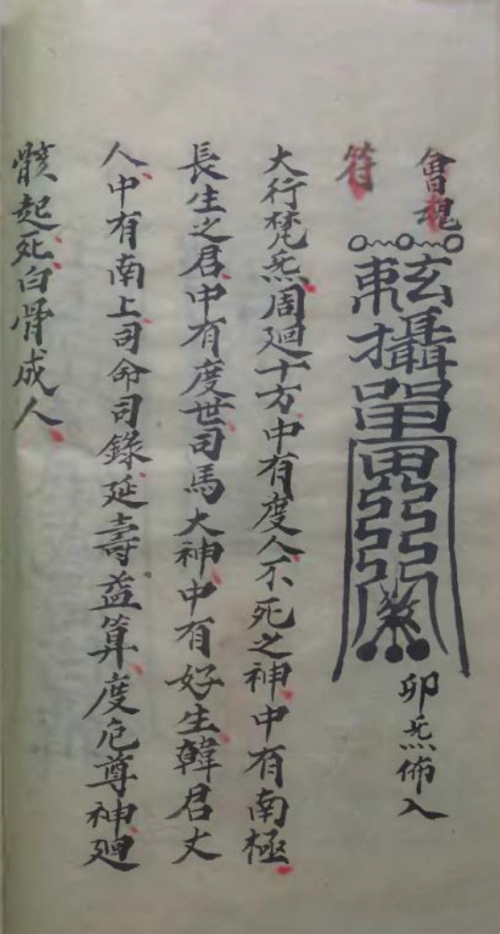 會魂
符
卯炁佈入
大行梵炁周廻十方中有度人不死之神中有南極
長生之君中有度世司馬大神中有好生韓君丈
人中有南上司命司錄延壽益算度厄尊神廻
骸起死白骨成人